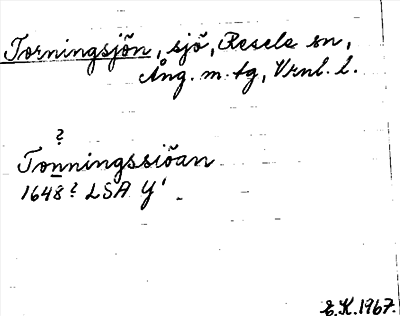 Torningsjön, sjö, Resele sn,
Ång. m. tg, Vrnl. l.
?
Tonningssiöan
1648? LSA Y'
E.K. 1967.